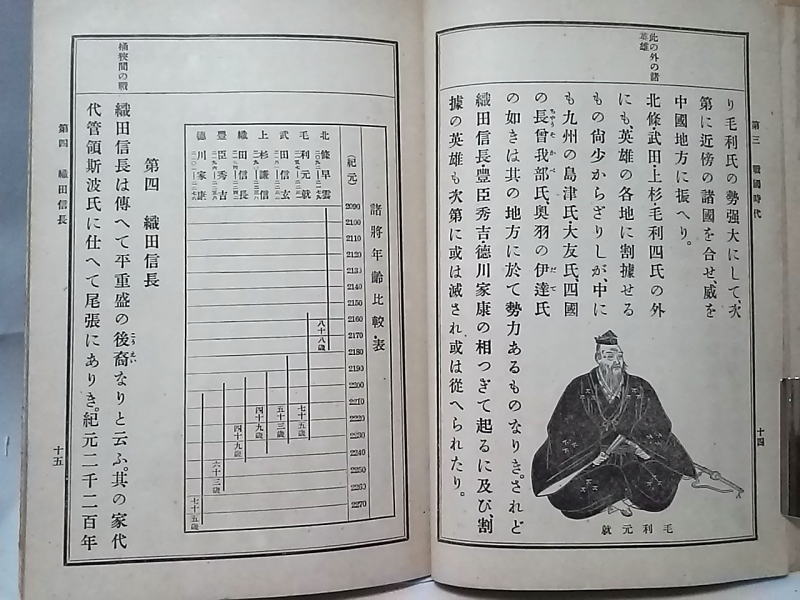 此の外の諸
英雄
第三　戰國時代
り毛利氏の勢强大にして、次
第に近傍の諸國を合せ、威を
中國地方に振へり。
北條・武田・上杉・毛利四氏の外
にも、英雄の各地に割據せる
もの尙少からざりしが、中に
も九州の島津氏・大友氏、四國
の長曾我部氏、奥羽の伊達氏
の如きは其の地方に於て勢力あるものなりき。されど
織田信長・豐臣秀吉・德川家康の相つぎて起るに及び、割
據の英雄も次第に或は滅され或は從へられたり。
毛利元就
十四
桶狹間の戰
諸將年齡比較表
(紀元)
2090
2100
2110
2120
2130
2140
2150
2160
2170
2180
2190
2200
2210
2220
2230
2240
2250
2260
2270
北條早雲
八十八歲
毛利元就
七十五歲
武田信玄
五十三歲
上杉謙信
四十九歲
織田信長
四十九歲
豐臣秀吉
六十三歲
德川家康
七十五歲
第四　織田信長
織田信長は傳へて平重盛の後裔なりと云ふ。其の家代
代管領斯波氏に仕へて尾張にありき。紀元二千二百年
第四　織田信長
十五